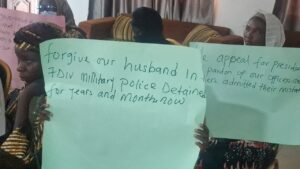 forgive our husband In
7Div military police Detained
for years and months now
appeal for presiden
pardon of our officers
admitted their mista